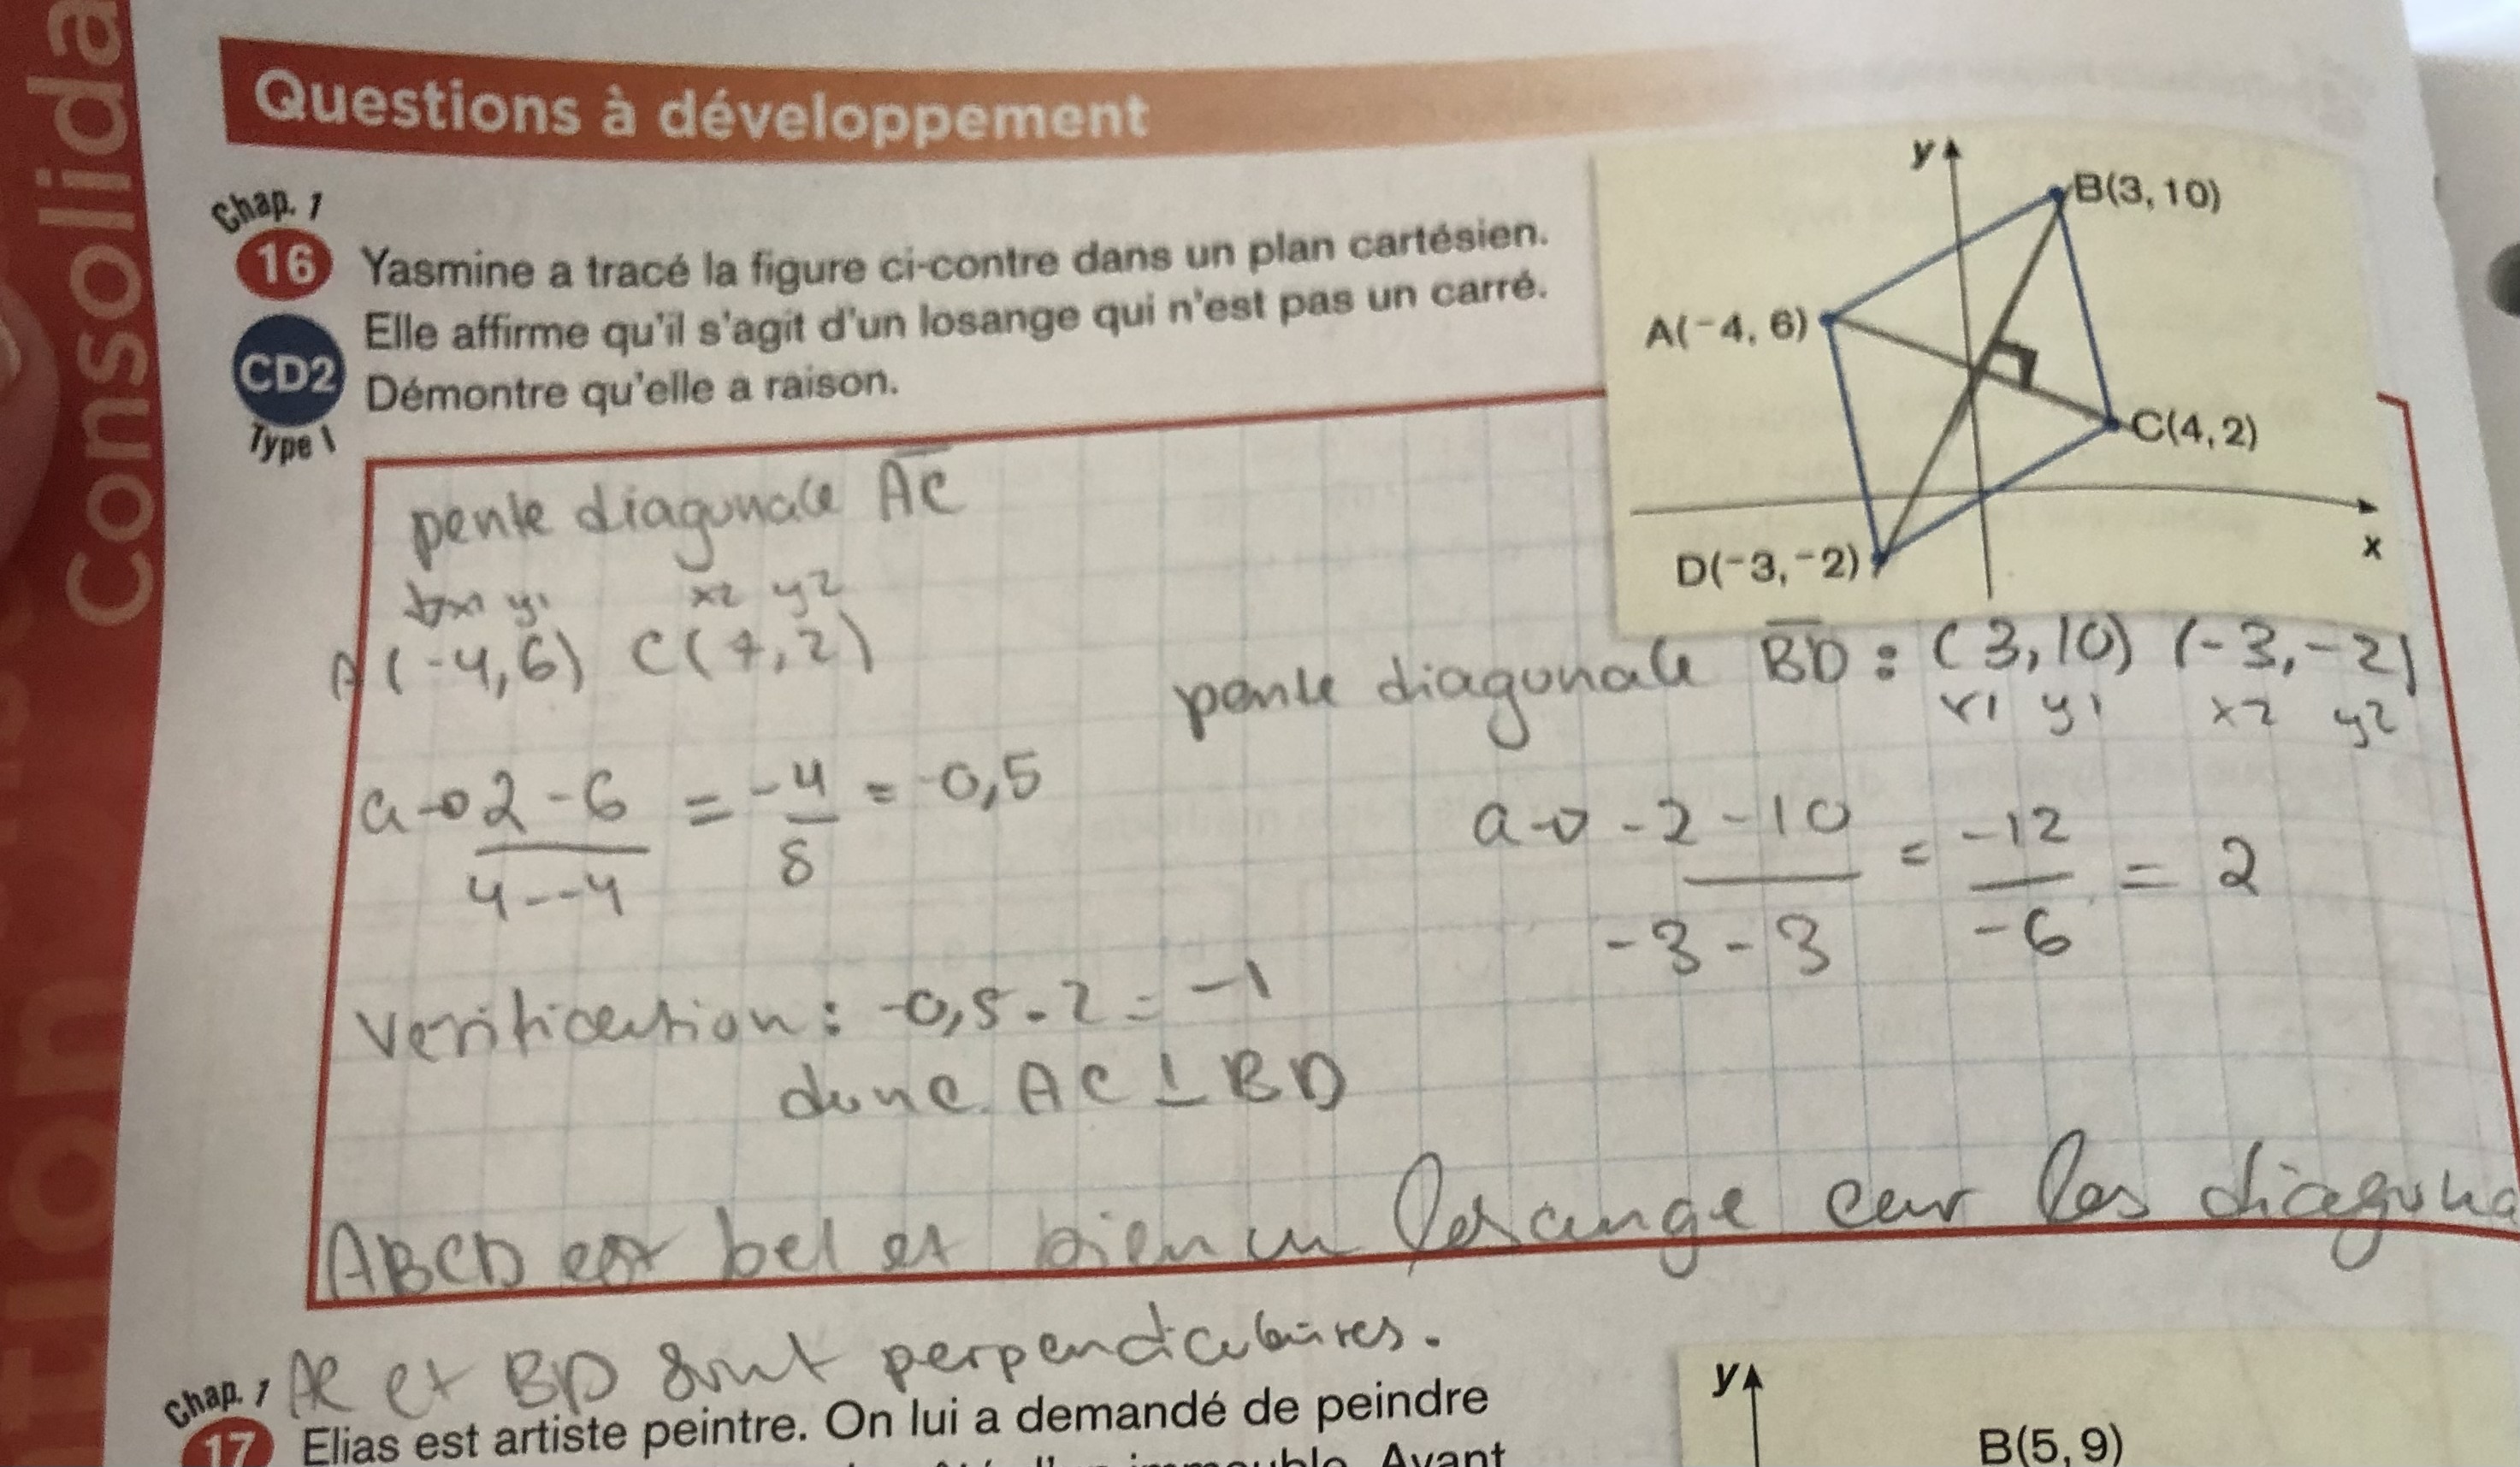 Consolida
tion
Questions à développement
Chap. 1
16 Yasmine a tracé la figure ci-contre dans un plan cartésien.
Elle affirme qu'il s'agit d'un losange qui n'est pas un carré.
CD2 Démontre qu'elle a raison.
Type 1
y
B(3, 10)
A(−4, 6)
C(4, 2)
D(−3, −2)
x
pente diagonale AC
x1 y1 x2 y2
A(-4,6) C(4,2)
a→ 2-6 / 4--4 = -4/8 = -0,5
pente diagonale BD : (3,10) (-3,-2)
x1 y1 x2 y2
a→ -2-10 / -3-3 = -12/-6 = 2
verification : -0,5 . 2 = -1
donc AC ⊥ BD
ABCD est bel et bien un losange car les diagona
AC et BD sont perpendiculaires.
Chap. 1
17 Elias est artiste peintre. On lui a demandé de peindre
Avant
y
B(5, 9)